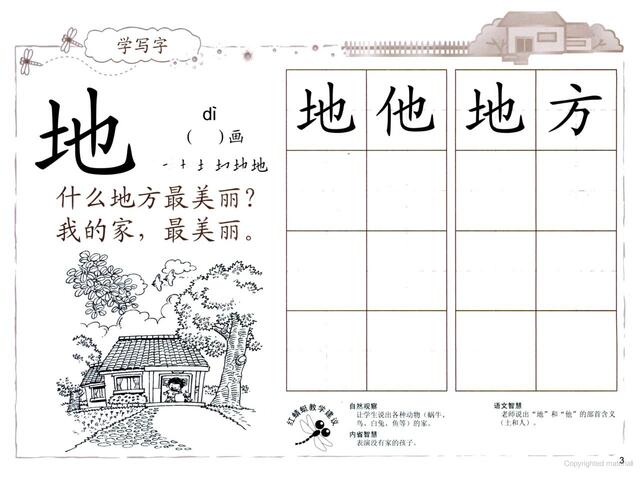 学写字
地
dì
( )画
一 十 圡 圠 地 地
什么地方最美丽？
我的家，最美丽。
地 他 地 方
红蜻蜓教学建议
自然观察
让学生说出各种动物（蜗牛、
鸟、白兔、鱼等）的家。
内省智慧
表演没有家的孩子。
语文智慧
老师说出“地”和“他”的部首含义
（土和人）。
3
Copyrighted material